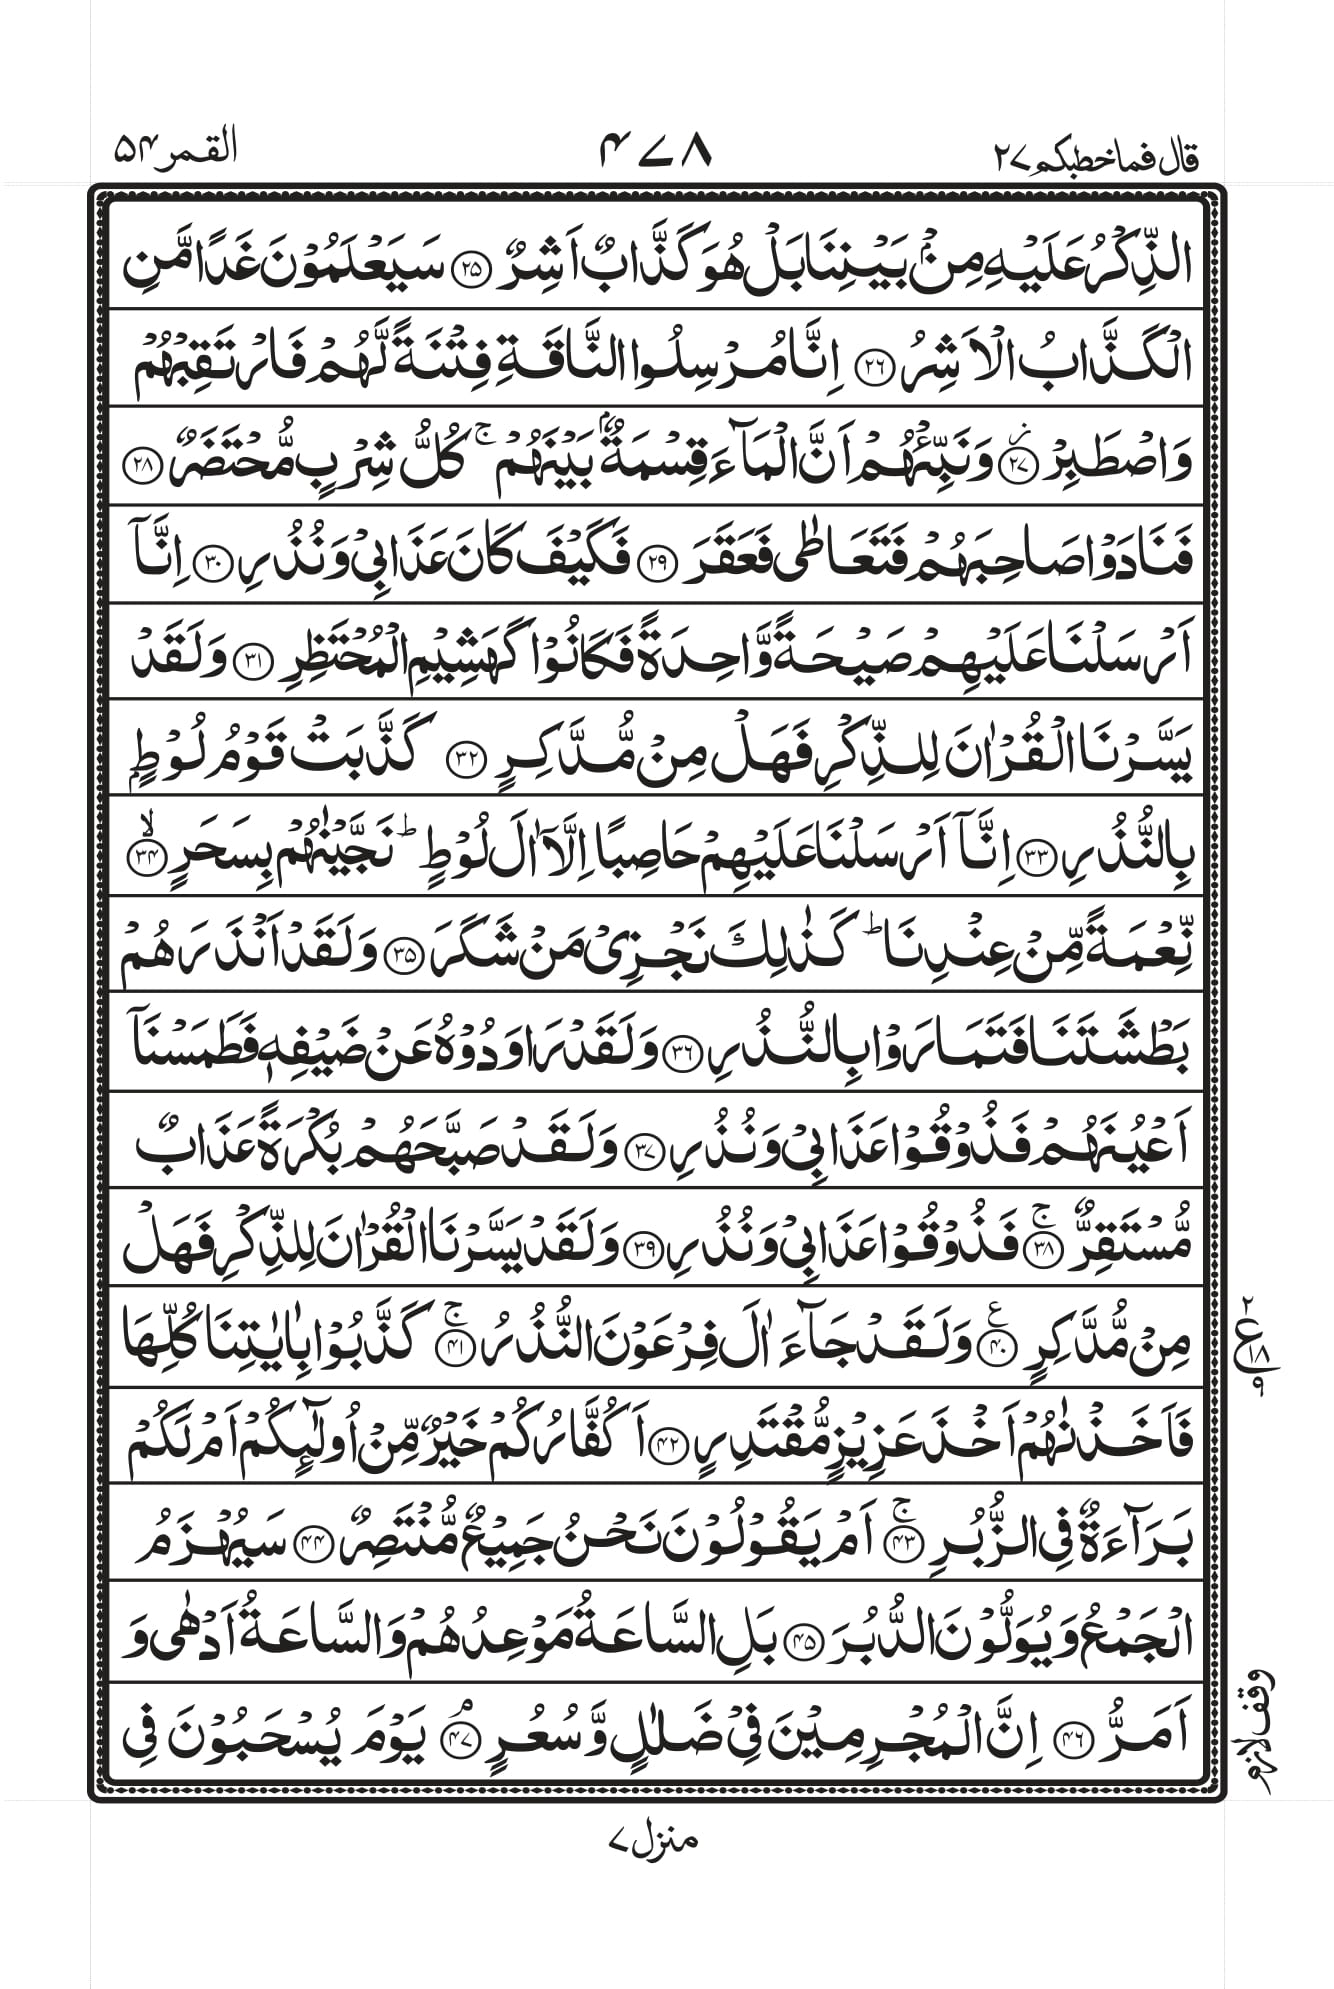 قال فما خطبكم ۲۷ ۴۷۸ القمر ۵۴
الذِّكْرُ عَلَيْهِ مِنْۢ بَيْنِنَا بَلْ هُوَ كَذَّابٌ اَشِرٌ ۝۲۵ سَيَعْلَمُوْنَ غَدًا مَّنِ
الْكَذَّابُ الْاَشِرُ ۝۲۶ اِنَّا مُرْسِلُوا النَّاقَةِ فِتْنَةً لَّهُمْ فَارْتَقِبْهُمْ
وَاصْطَبِرْ ۝۲۷ز وَنَبِّئْهُمْ اَنَّ الْمَآءَ قِسْمَةٌۢ بَيْنَهُمْ ۚ كُلُّ شِرْبٍ مُّحْتَضَرٌ ۝۲۸
فَنَادَوْا صَاحِبَهُمْ فَتَعَاطٰى فَعَقَرَ ۝۲۹ فَكَيْفَ كَانَ عَذَابِيْ وَنُذُرِ ۝۳۰ اِنَّآ
اَرْسَلْنَا عَلَيْهِمْ صَيْحَةً وَّاحِدَةً فَكَانُوْا كَهَشِيْمِ الْمُحْتَظِرِ ۝۳۱ وَلَقَدْ
يَسَّرْنَا الْقُرْاٰنَ لِلذِّكْرِ فَهَلْ مِنْ مُّدَّكِرٍ ۝۳۲ كَذَّبَتْ قَوْمُ لُوْطٍۭ
بِالنُّذُرِ ۝۳۳ اِنَّآ اَرْسَلْنَا عَلَيْهِمْ حَاصِبًا اِلَّآ اٰلَ لُوْطٍ ؕ نَجَّيْنٰهُمْ بِسَحَرٍ ۝۳۴ۙ
نِّعْمَةً مِّنْ عِنْدِنَا ؕ كَذٰلِكَ نَجْزِيْ مَنْ شَكَرَ ۝۳۵ وَلَقَدْ اَنْذَرَهُمْ
بَطْشَتَنَا فَتَمَارَوْا بِالنُّذُرِ ۝۳۶ وَلَقَدْ رَاوَدُوْهُ عَنْ ضَيْفِهٖ فَطَمَسْنَآ
اَعْيُنَهُمْ فَذُوْقُوْا عَذَابِيْ وَنُذُرِ ۝۳۷ وَلَقَدْ صَبَّحَهُمْ بُكْرَةً عَذَابٌ
مُّسْتَقِرٌّ ۝۳۸ۚ فَذُوْقُوْا عَذَابِيْ وَنُذُرِ ۝۳۹ وَلَقَدْ يَسَّرْنَا الْقُرْاٰنَ لِلذِّكْرِ فَهَلْ
مِنْ مُّدَّكِرٍ ۝۴۰ع وَلَقَدْ جَآءَ اٰلَ فِرْعَوْنَ النُّذُرُ ۝۴۱ۚ كَذَّبُوْا بِاٰيٰتِنَا كُلِّهَا
۲ ع ۱۸ ۹
فَاَخَذْنٰهُمْ اَخْذَ عَزِيْزٍ مُّقْتَدِرٍ ۝۴۲ اَكُفَّارُكُمْ خَيْرٌ مِّنْ اُولٰٓئِكُمْ اَمْ لَكُمْ
بَرَآءَةٌ فِي الزُّبُرِ ۝۴۳ۚ اَمْ يَقُوْلُوْنَ نَحْنُ جَمِيْعٌ مُّنْتَصِرٌ ۝۴۴ سَيُهْزَمُ
الْجَمْعُ وَيُوَلُّوْنَ الدُّبُرَ ۝۴۵ بَلِ السَّاعَةُ مَوْعِدُهُمْ وَالسَّاعَةُ اَدْهٰى وَ
اَمَرُّ ۝۴۶ اِنَّ الْمُجْرِمِيْنَ فِيْ ضَلٰلٍ وَّسُعُرٍ ۝۴۷ۘ يَوْمَ يُسْحَبُوْنَ فِي
وقف لازم
منزل ۷